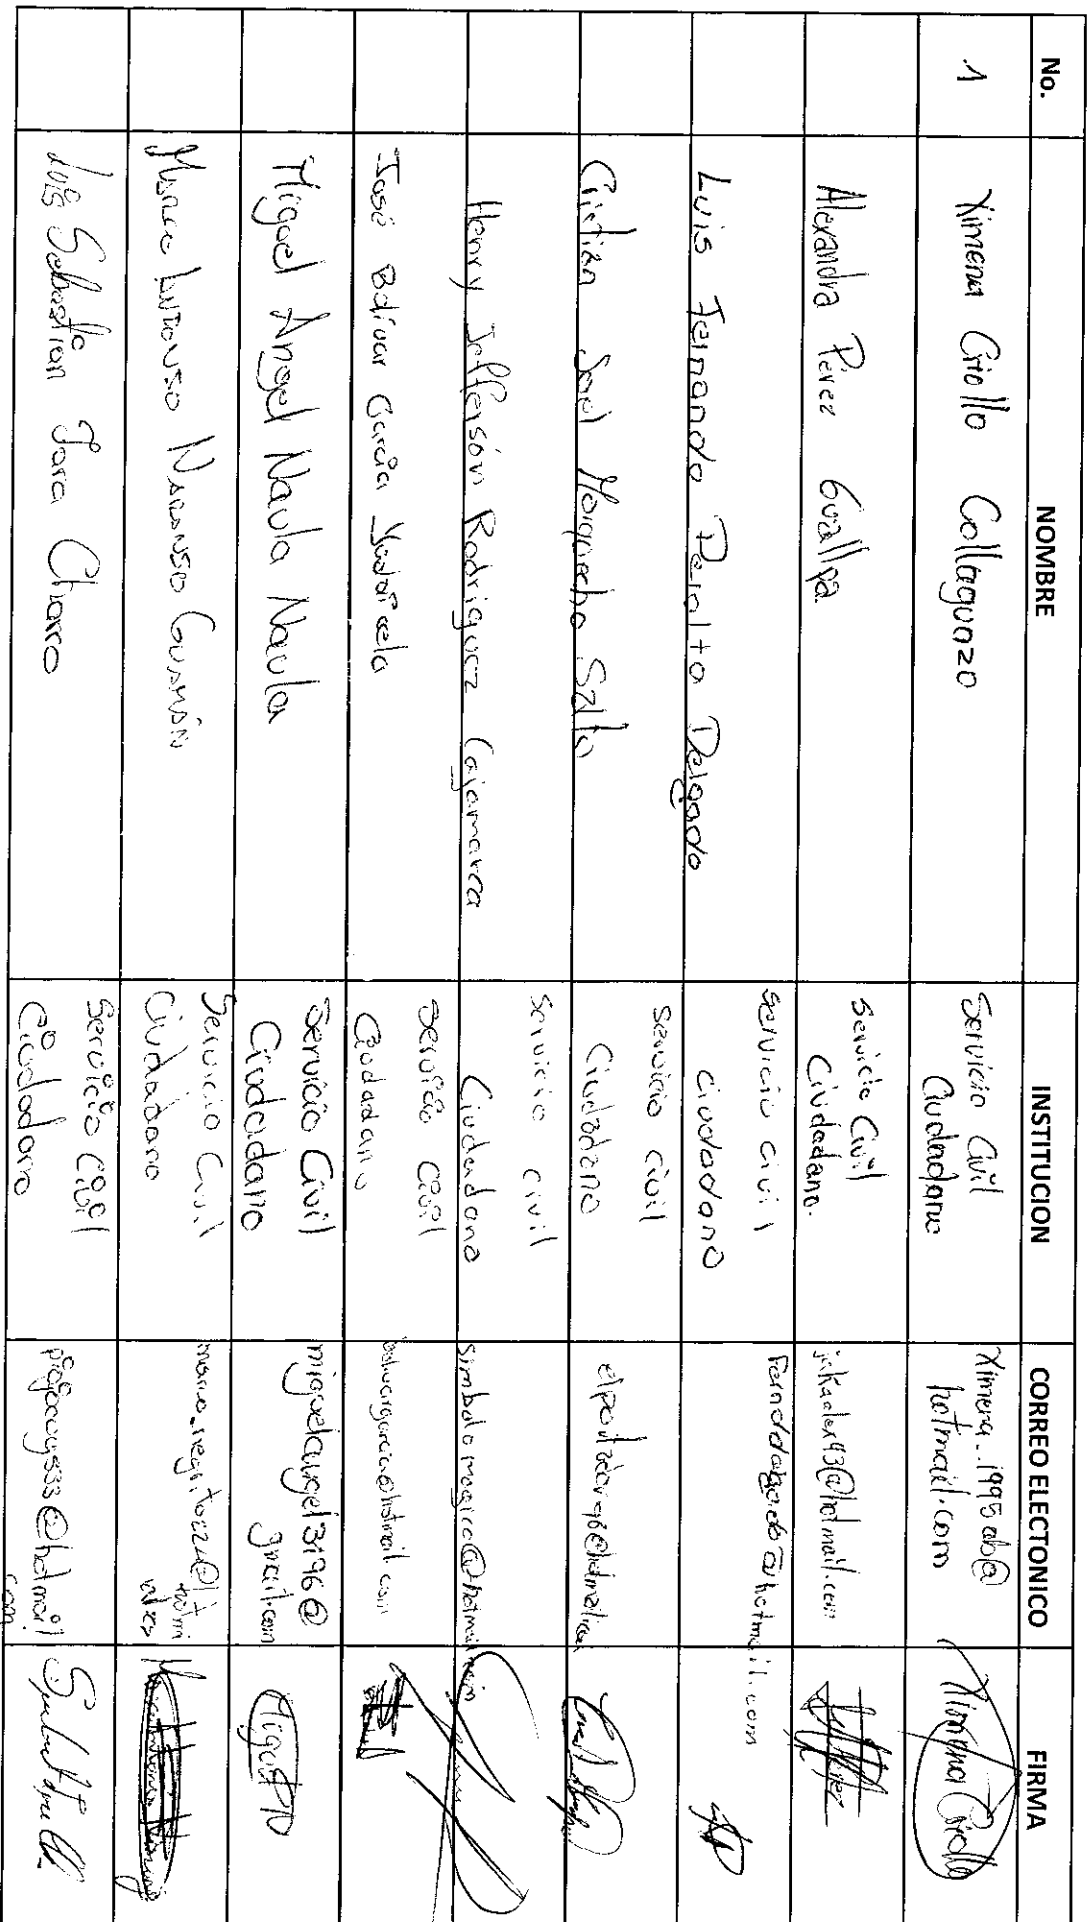 No. NOMBRE INSTITUCION CORREO ELECTONICO FIRMA
1 Ximena Criollo Collaguazo Servicio Civil Ciudadano Ximena_1995ab@hotmail.com Ximena Criollo
Alexandra Pérez Guallpa Servicio Civil Ciudadano. @hotmail.com
Luis Fernando Peralta Delgado Servicio civil ciudadano @hotmail.com
Cristian Salto Servicio civil Ciudadano
Henry Jefferson Rodriguez Cajamarca Servicio civil Ciudadano simbolomagico@hotmail.com
José Bolívar García Servicio Civil Ciudadano bolivargarcia@hotmail.com
Miguel Angel Naula Naula Servicio Civil Ciudadano miguelangel3196@gmail.com Miguel
Naranjo Guamán Servicio Civil Ciudadano
Luis Sebastian Jara Charro Servicio Civil Ciudadano @hotmail.com